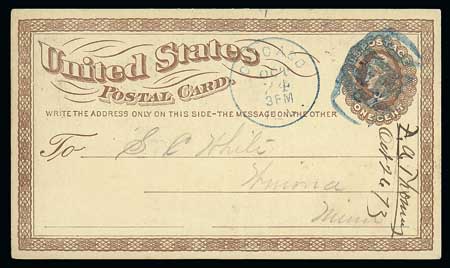 United States
POSTAL CARD.
WRITE THE ADDRESS ONLY ON THIS SIDE-THE MESSAGE ON THE OTHER
CHICAGO
OCT
24
3 PM
POSTAGE
ONE CENT
To S. C. White
Winona
Minn
Oct 24 /73